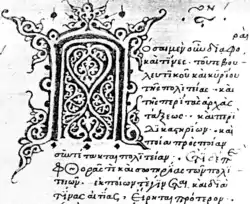 ραὶ
Πόσαι μὲν οὖν διαφο
καὶ τίνες τοῦ τε βου
λευτικοῦ καὶ κυρίου
τῆς πολιτείας καὶ
τῆς περὶ τὰς ἀρχὰς
τάξεως καὶ περὶ
δικαστηρίων καὶ
ποία πρὸς ποίαν
συντέτακται πολιτείαν. ἔτι δὲ περὶ
φθορᾶς τε καὶ σωτηρίας τῶν πολι
τειῶν ἐκ ποίων τε γίνεται καὶ διὰ
τίνας αἰτίας, εἴρηται πρότερον.